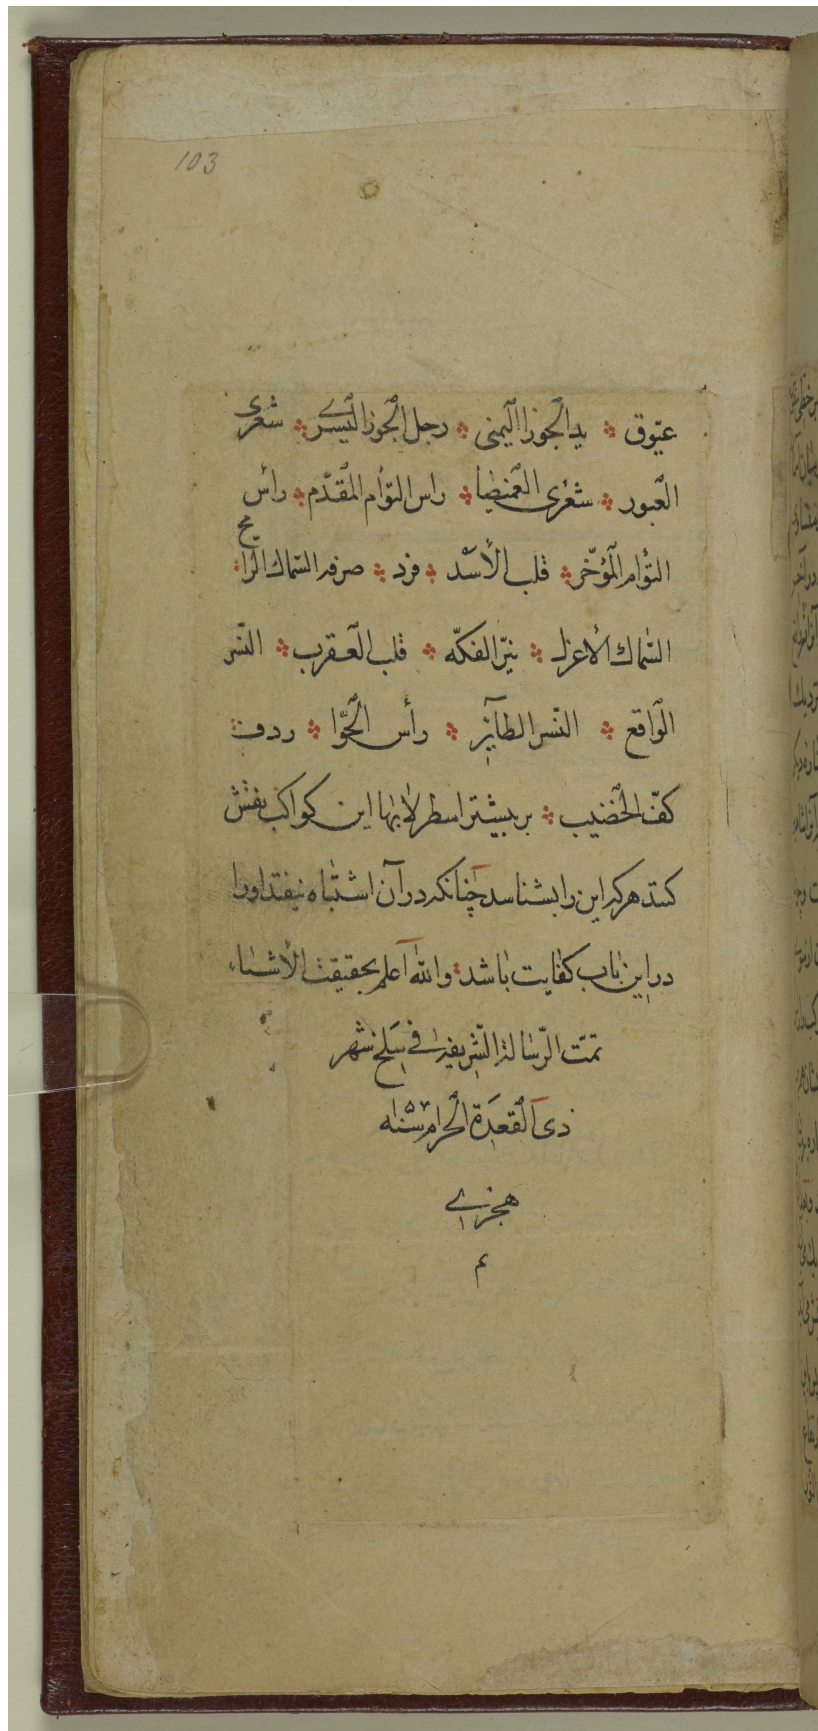 103
عیّوق ؞ ید الجوزا الیمنی ؞ رجل الجوزا الیسری ؞ شعری
العبور ؞ شعری الغمیصا ؞ راس التوأم المقدّم ؞ رأس
التوأم المؤخّر ؞ قلب الأسد ؞ فرد ؞ صرفه السّماك الرامح
السّماك الاعزل ؞ نیّر الفکّه ؞ قلب العقرب ؞ النّسر
الواقع ؞ النّسر الطایر ؞ رأس الحوّا ؞ ردف
کفّ الخضیب ؞ بر بیشتر اسطرلابها این کواکب نقش
کنند هرکه این را بشناسد چنانکه در آن اشتباه نیفتد او را
در این باب کفایت باشد والله اعلم بحقیقت الأشیاء
تمّت الرّسالة الشّریفه فی سلخ شهر
ذی القعدة الحرام سنه
هجری
م